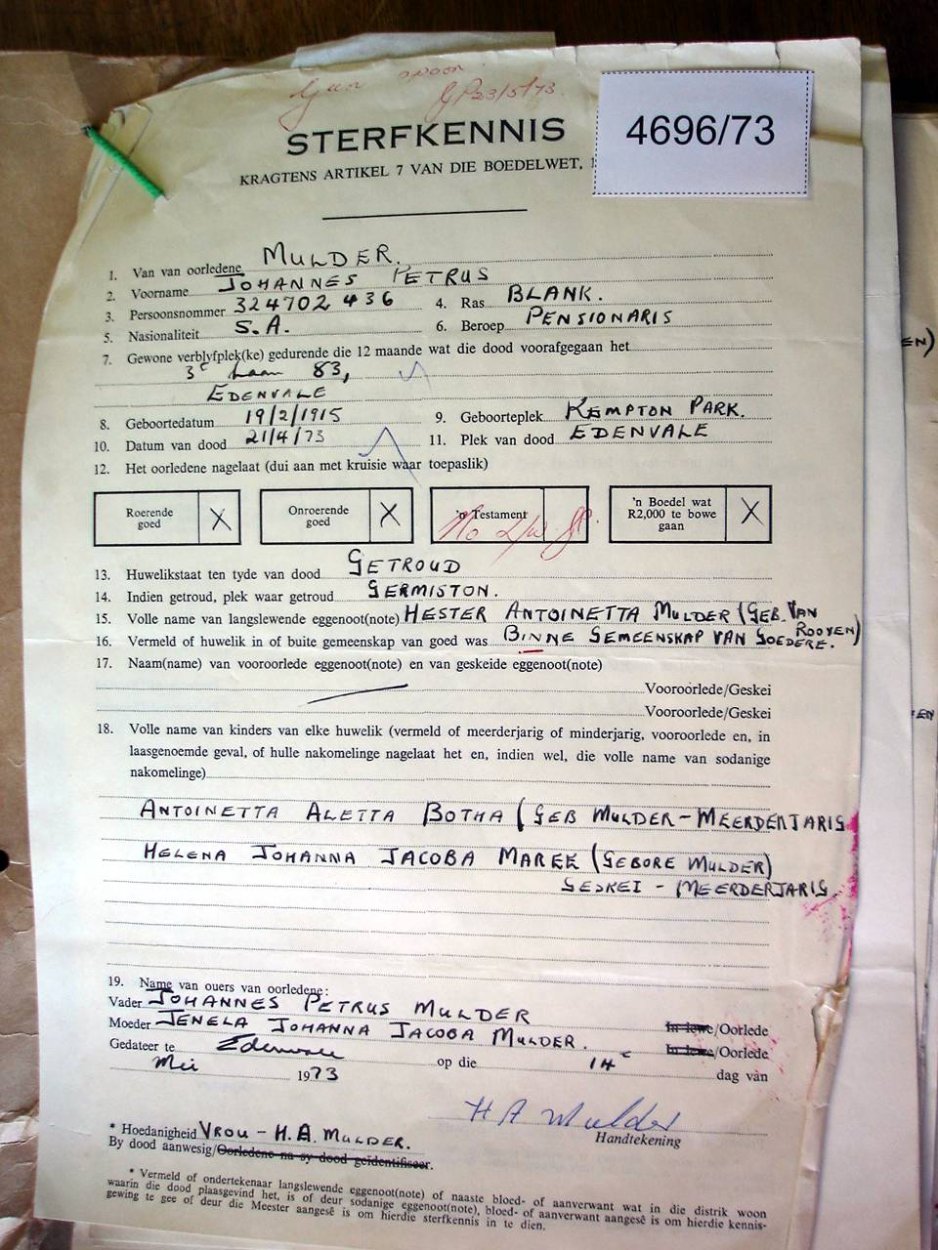 GP 23/5/73.
4696/73
STERFKENNIS
KRAGTENS ARTIKEL 7 VAN DIE BOEDELWET,
1. Van van oorledene MULDER.
2. Voorname JOHANNES PETRUS
3. Persoonsnommer 324702 436 4. Ras BLANK.
5. Nasionaliteit S.A. 6. Beroep PENSIONARIS
7. Gewone verblyfplek(ke) gedurende die 12 maande wat die dood voorafgegaan het
3e Laan 83,
EDENVALE
8. Geboortedatum 19/2/1915 9. Geboorteplek KEMPTON PARK.
10. Datum van dood 21/4/73 11. Plek van dood EDENVALE
12. Het oorledene nagelaat (dui aan met kruisie waar toepaslik)
Roerende goed X Onroerende goed X 'n Testament 'n Boedel wat R2,000 te bowe gaan X
13. Huwelikstaat ten tyde van dood GETROUD
14. Indien getroud, plek waar getroud GERMISTON.
15. Volle name van langslewende eggenoot(note) HESTER ANTOINETTA MULDER (GEB. VAN ROOYEN)
16. Vermeld of huwelik in of buite gemeenskap van goed was BINNE GEMEENSKAP VAN GOEDERE.
17. Naam(name) van vooroorlede eggenoot(note) en van geskeide eggenoot(note)
Vooroorlede/Geskei
Vooroorlede/Geskei
18. Volle name van kinders van elke huwelik (vermeld of meerderjarig of minderjarig, vooroorlede en, in
laasgenoemde geval, of hulle nakomelinge nagelaat het en, indien wel, die volle name van sodanige
nakomelinge)
ANTOINETTA ALETTA BOTHA (GEB MULDER - MEERDERJARIG
HELENA JOHANNA JACOBA MAREE (GEBORE MULDER)
GESKEI - MEERDERJARIG.
19. Name van ouers van oorledene:
Vader JOHANNES PETRUS MULDER In lewe/Oorlede
Moeder JENELA JOHANNA JACOBA MULDER. In lewe/Oorlede
Gedateer te Edenvale op die 14e dag van
Mei 1973
H A Mulder
Handtekening
* Hoedanigheid VROU - H.A. MULDER.
By dood aanwesig/Oorledene na sy dood geïdentifiseer.
* Vermeld of ondertekenaar langslewende eggenoot(note) of naaste bloed- of aanverwant wat in die distrik woon
waarin die dood plaasgevind het, is of deur sodanige eggenoot(note), bloed- of aanverwant aangesê is om hierdie kennis-
gewing te gee of deur die Meester aangesê is om hierdie sterfkennis in te dien.